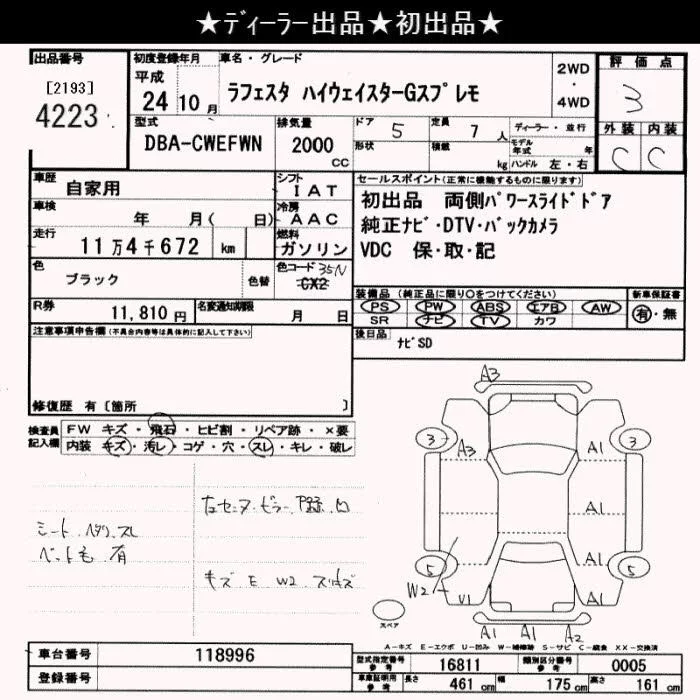 ★ディーラー出品★初出品★
出品番号
[2193]
4223
初度登録年月
平成
24 10 月
車名・グレード
ラフェスタ ハイウェイスターGスプレモ
2WD
・
4WD
評価点
3
外装 内装
C C
型式
DBA-CWEFWN
排気量
2000
CC
ドア 5
定員 7 人
形状
積載 kg
ディーラー・並行
モデル年式 年
ハンドル 左・右
車歴
自家用
シフト
IAT
車検
年 月( 日)
冷房
AAC
走行
11万4千672 km
燃料
ガソリン
色
ブラック
色替
色コード 35N
CX2
R券
11,810 円
名変通知期限
月 日
セールスポイント(正常に機能するものに限ります)
初出品 両側パワースライドドア
純正ナビ・DTV・バックカメラ
VDC 保・取・記
装備品 (純正品に限り○をつけてください)
PS PW ABS エアB AW
SR ナビ TV カワ
新車保証書
有・無
後日品
ナビSD
注意事項申告欄(不具合内容等は具体的に記入して下さい)
修復歴 有〔箇所 〕
検査員記入欄
FW キズ・飛石・ヒビ割・リペア跡・×要
内装 キズ・汚レ・コゲ・穴・スレ・キレ・破レ
シート
ペット毛 有
キズ E W2
A3
3
3
A3
A1
A1
5
5
A1
W2
V1
A1
スペア
A1 A1 A2
A-キズ E-エクボ U-凹み W-補修跡 S-サビ C-腐食 XX-交換済
車台番号
118996
登録番号
型式指定番号
参考
16811
類別区分番号
参考
0005
車庫証明用
参考
長さ 461 cm
幅 175 cm
高さ 161 cm